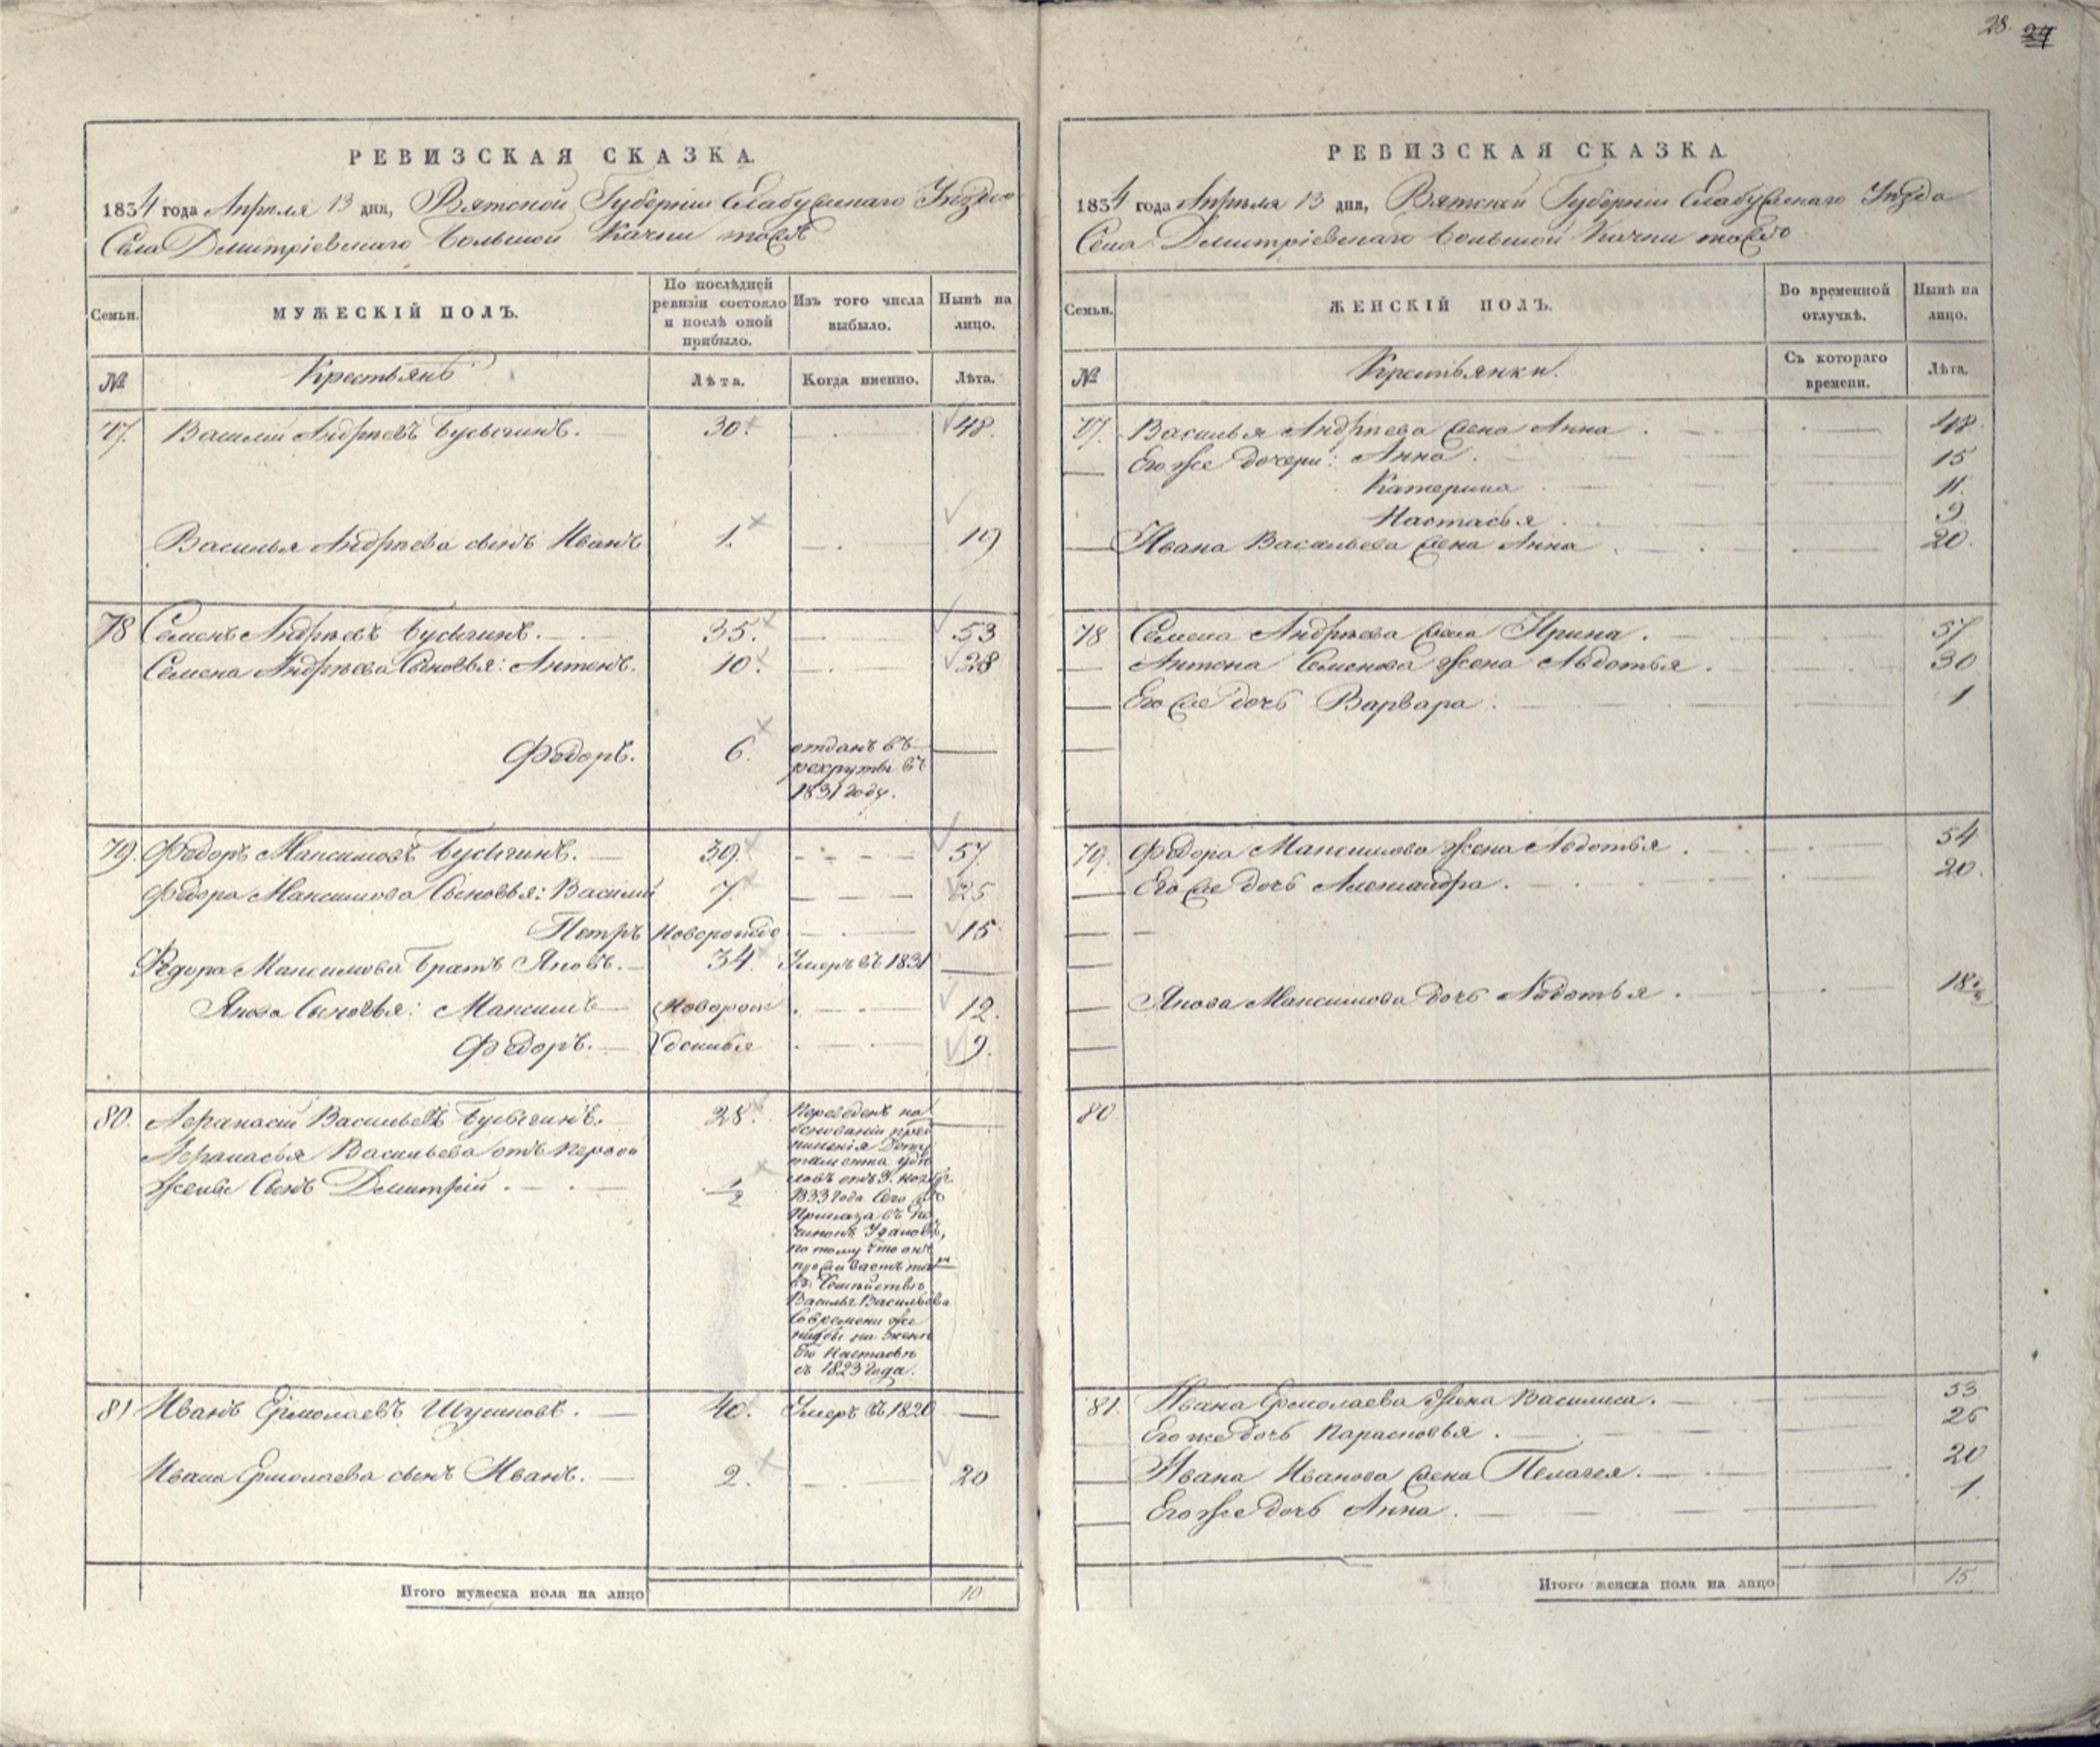 28. 27
РЕВИЗСКАЯ СКАЗКА.
1834 года Апреля 13 дня, Вятской Губернiи Елабужскаго Уезда
Села Димитрiевскаго большой Качки тожъ
Семьи.
МУЖЕСКIЙ ПОЛЪ.
По послѣдней ревизiи состояло и послѣ оной прибыло.
Изъ того числа выбыло.
Нынѣ на лицо.
№
Крестьянъ
Лѣта.
Когда именно.
Лѣта.
77. Василiй Андреевъ Бусыгинъ. 30. 48.
Василья Андреева сынъ Иванъ 1. 19
78 Семенъ Андреевъ Бусыгинъ. 35. 53
Семена Андреева Сыновья: Антонъ. 10. 28
Федоръ. 6. отданъ въ
рекруты въ
1831 году.
79. Федоръ Максимовъ Бусыгинъ. 39. 57.
Федора Максимова Сыновья: Василiй 7. 25
Петръ новорожде 15.
Федора Максимова братъ Яковъ. 34. Умеръ въ 1831
Якова Сыновья: Максимъ новорож 12.
Федоръ. денные 9.
80. Афанасiй Васильевъ Бусыгинъ. 28. Переведенъ на
Афанасья Васильева отъ первой
жены Сынъ Димитрiй. 1/2
основанiи пред
писанiя Депар
тамента удѣ
ловъ отъ 9. ноябр.
1833 года Сего
Приказа въ По
чинокъ
потому что онъ
проживаетъ там
въ Семействе
Василья Васильева
Современи же
нидбы на жене
Его Настасье
съ 1823 года.
81 Иванъ Ермолаевъ Шушковъ. 40. Умеръ въ 1820
Ивана Ермолаева сынъ Иванъ. 2. 20
Итого мужеска пола на лицо 10
РЕВИЗСКАЯ СКАЗКА
1834 года Апреля 13 дня, Вятской Губернiи Елабужскаго Уезда
Села Димитрiевскаго большой Качки тожъ
Семьи.
ЖЕНСКIЙ ПОЛЪ.
Во временной отлучкѣ.
Нынѣ на лицо.
№
Крестьянки.
Съ котораго времени.
Лѣта.
77. Василья Андреева жена Анна. 48.
Его же дочери: Анна. 15
Катерина 11.
Настасья. 9
Ивана Васильева жена Анна 20.
78 Семена Андреева жена Ирина. 57
Антона Семенова жена Авдотья. 30
Его же дочь Варвара. 1
79. Федора Максимова жена Авдотья. 54
Его же дочь Александра. 20.
Якова Максимова дочь Авдотья. 18
80
81. Ивана Ермолаева жена Василиса. 53
Его же дочь Парасковья. 26
Ивана Иванова жена Пелагея. 20
Его же дочь Анна. 1.
Итого женска пола на лицо 15.